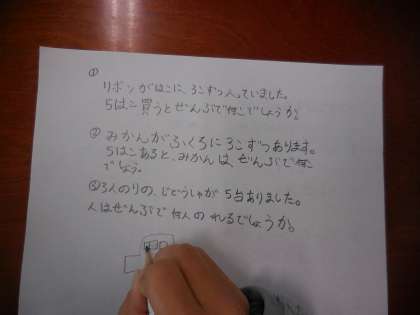 ①
リボンがはこに、3こずつ入っていました。
5はこ買うとぜんぶで何こでしょうか。
② みかんがふくろに3こずつあります。
5はこあると、みかんは、ぜんぶで何こ
でしょう。
③ 3人のりの、じどうしゃが5台ありました。
人はぜんぶで何人のれるでしょうか。